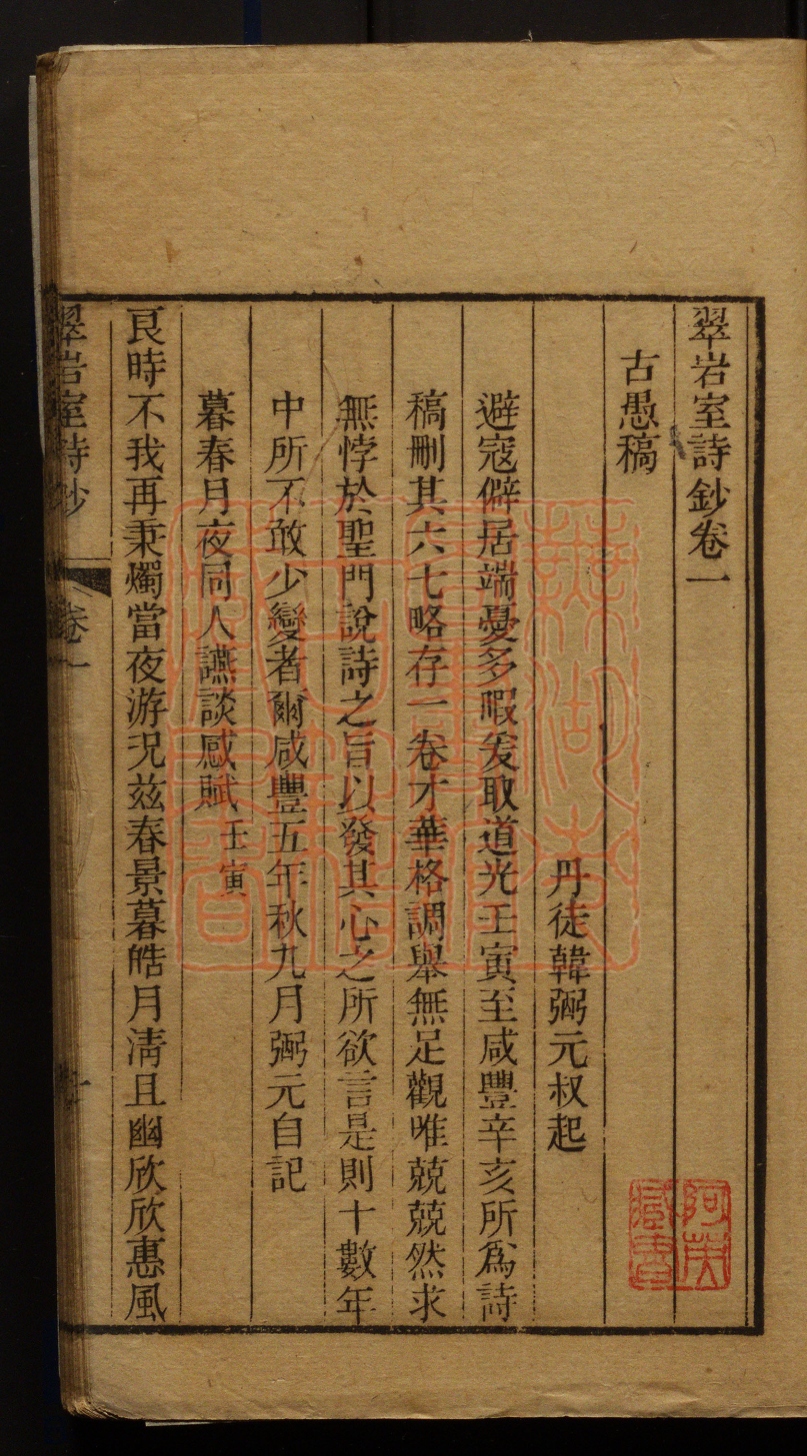 翠岩室詩鈔卷一
古愚稿
丹徒韓弼元叔起
避寇僻居端憂多暇爰取道光壬寅至咸豐辛亥所爲詩
稿刪其六七略存一卷才華格調舉無足觀唯兢兢然求
無悖於聖門說詩之旨以發其心之所欲言是則十數年
中所不敢少變者爾咸豐五年秋九月弼元自記
暮春月夜同人讌談感賦壬寅
良時不我再秉燭當夜游況兹春景暮皓月淸且幽欣欣惠風
翠岩室詩鈔 卷一 一